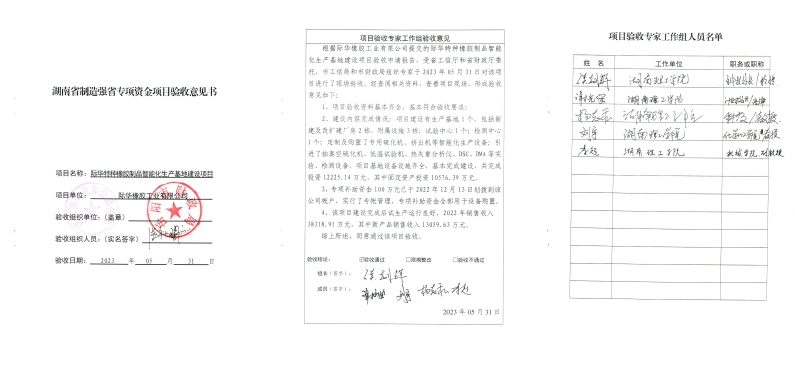 湖南省制造强省专项资金项目验收意见书
项目名称：际华特种橡胶制品智能化生产基地建设项目
项目单位：际华橡胶工业有限公司
验收组织单位：（盖章）
验收组织人员：（实名签字）
验收日期：2023 年 05 月 31 日
项目验收专家工作组验收意见
根据际华橡胶工业有限公司提交的际华特种橡胶制品智能
化生产基地建设项目验收申请报告，受省工信厅和省财政厅委
托，市工信局和市财政局组织专家于 2023 年 05 月 31 日对该项
目进行了现场验收，经查阅相关资料、查看项目现场，形成验收
意见如下：
1、项目验收资料基本齐全，基本符合验收要求；
2、建设内容完成情况：项目建设有生产基地 1 个，包括新
建及改扩建厂房 2 栋，附属设施 3 栋；试验中心 1 个；检测中心
1 个；定制及购置了专用硫化机、挤出机等智能化生产设备；引
进了抽真空硫化机、低温试验机、热失重分析仪、DSC、DMA 等实
验、检测设备，项目基地设备设施齐全，基本完成建设，共完成
投资 12225.14 万元，其中固定资产投资 10576.39 万元。
3、专项补助资金 100 万元已于 2022 年 12 月 13 日划拨到该
公司账户，实行了专帐管理，专项补助资金全部用于设备购置。
4、该项目建设完成后试生产运行良好，2022 年销售收入
38318.91 万元，其中新产品销售收入 13059.63 万元。
综上所述，同意通过该项目验收。
验收结论： ☑验收通过 □限期整改 □验收不通过
组长（签字）：
成员（签字）：
2023 年 05 月 31 日
项目验收专家工作组人员名单
姓 名 工作单位 职务或职称
湖南理工学院
湖南理工学院
湖南理工学院
湖南理工学院